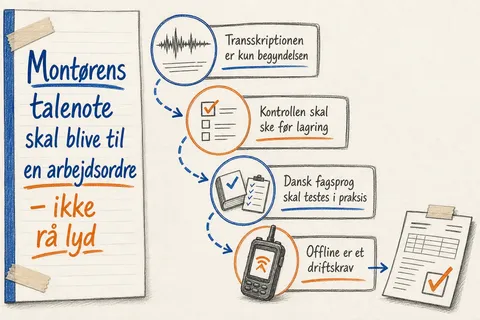 Montørens
talenote
skal blive til
en arbejdsordre
– ikke
rå lyd
Transskriptionen
er kun begyndelsen
Kontrollen skal
ske før lagring
Dansk fagsprog
skal testes i praksis
Offline er et
driftskrav